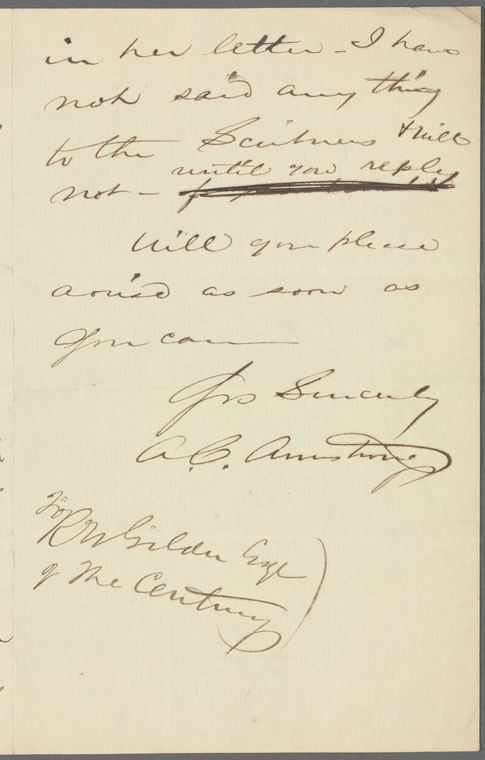 in her letter - I have
not said any thing
to the Scribners & will
not - until you reply
Will you please
advise as soon as
you can
Yrs Sincerely
A.C. Armstrong
To
R W Gilder Esqr
of The Century